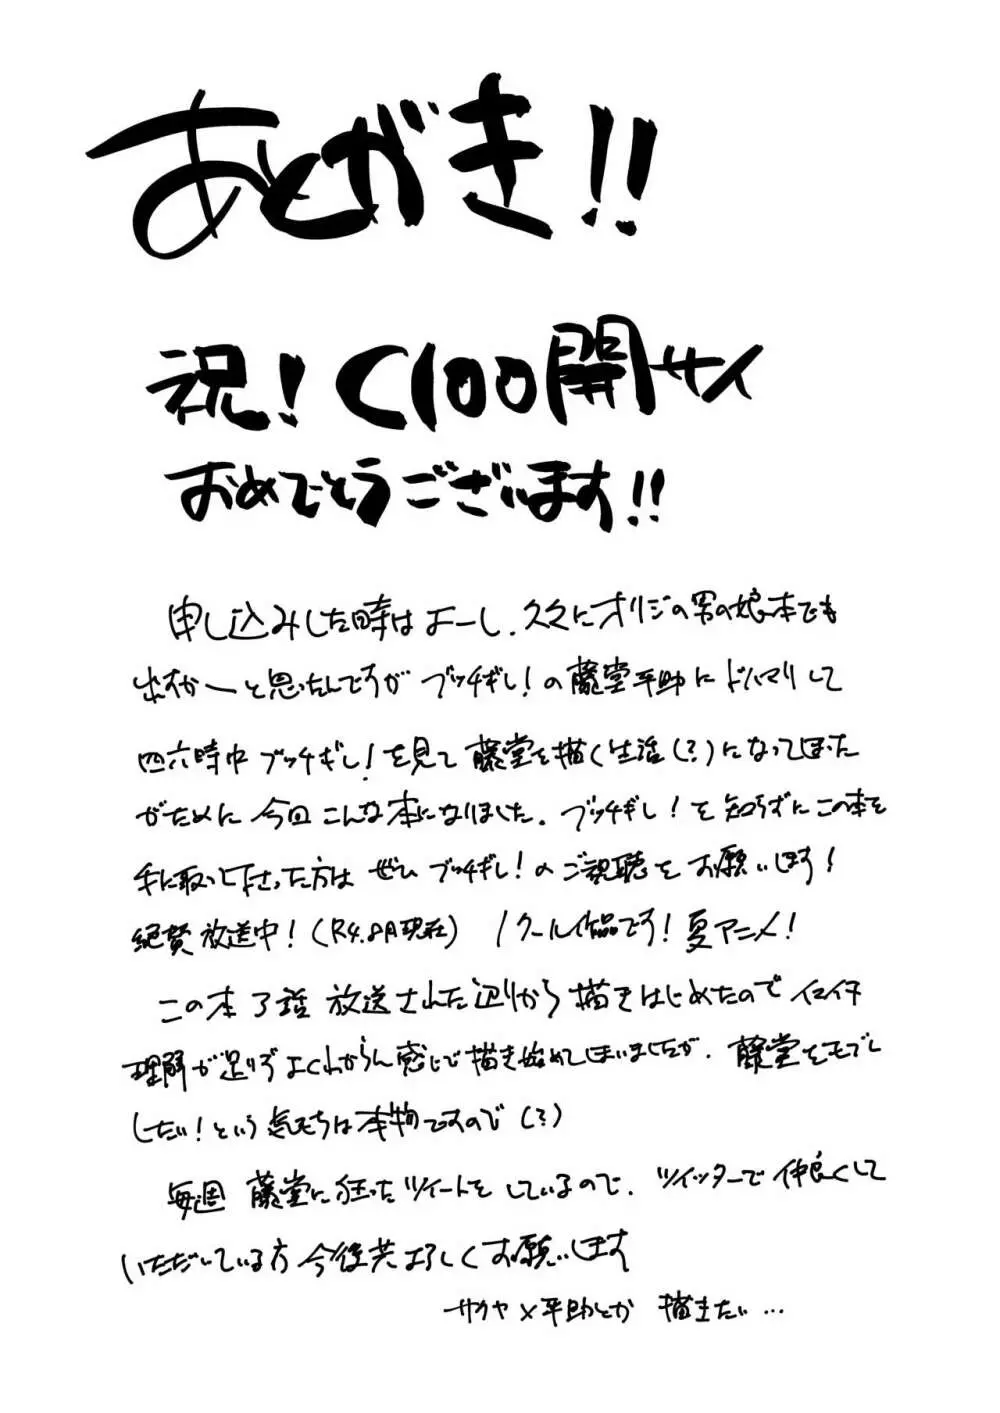 あとがき!!
祝!C100開サイ
おめでとうございます!!
申し込みした時はよーし、久々にオリジの男の娘本でも
出すかーと思ったんですが ブッチぎし!の藤堂平助にドハマりして
四六時中ブッチぎし!を見て藤堂を描く生活(?)になってしまった
がために今回こんな本になりました。ブッチぎし!を知らずにこの本を
手に取って下さった方は ぜひ ブッチぎし!のご視聴をお願いします!
絶賛放送中!(R4.8月現在) 1クール作品です!夏アニメ!
この本 3話 放送された辺りから 描きはじめたので イマイチ
理解が足りずよくわからん感じで描き始めてしまいましたが、藤堂をモブし
したい!という気持ちは本物ですので(?)
毎週 藤堂に狂ったツイートをしているので、ツイッターで仲良くして
いただいている方 今後共よろしくお願いします
サクヤ×平助とか 描きたい…